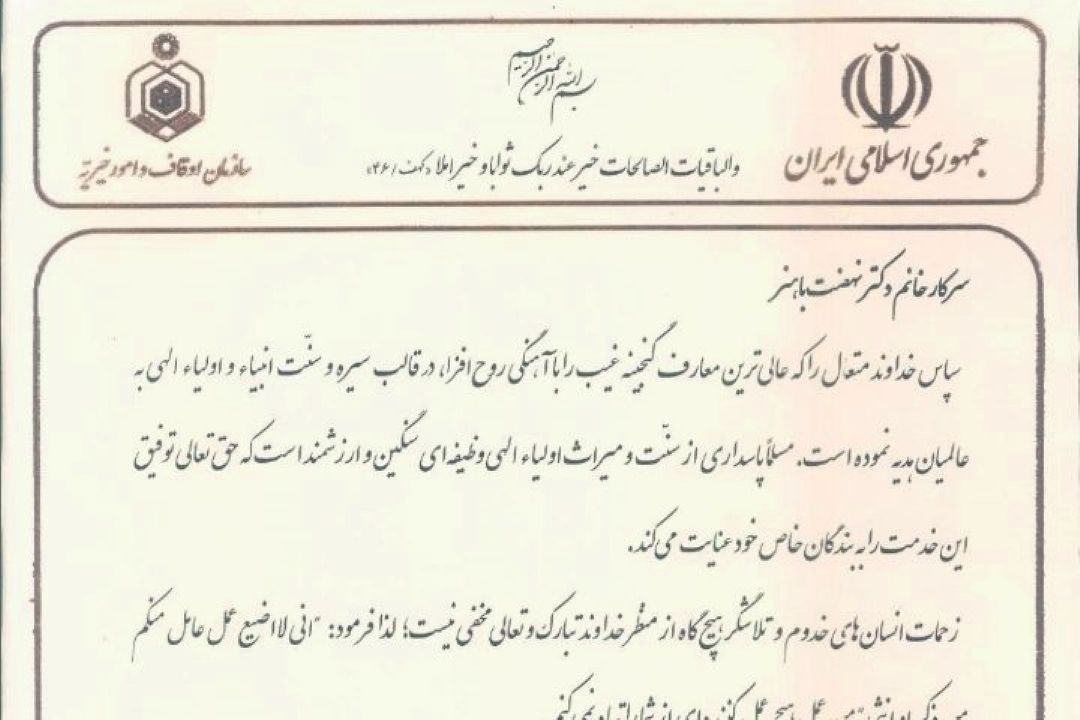 بسم الله الرحمن الرحیم
جمهوری اسلامی ایران
والباقیات الصالحات خیر عند ربک ثوابا و خیر املا «کهف/۴۶»
سازمان اوقاف و امور خیریّه
سرکار خانم دکتر نهضت باهنر
سپاس خداوند متعال را که عالی ترین معارف گنجینه غیب را با آهنگی روح افزا، در قالب سیره و سنّت انبیاء و اولیاء الهی به
عالمیان هدیه نموده است. مسلماً پاسداری از سنّت و میراث اولیاء الهی وظیفه ای سنگین و ارزشمند است که حق تعالی توفیق
این خدمت را به بندگان خاص خود عنایت می کند.
زحمات انسان های خدوم و تلاشگر هیچ گاه از منظر خداوند تبارک و تعالی مخفی نیست؛ لذا فرمود: "انی لا اضیع عمل عامل منکم
من ذکر او انثی" من عمل هیچ عمل کننده ای را از شما